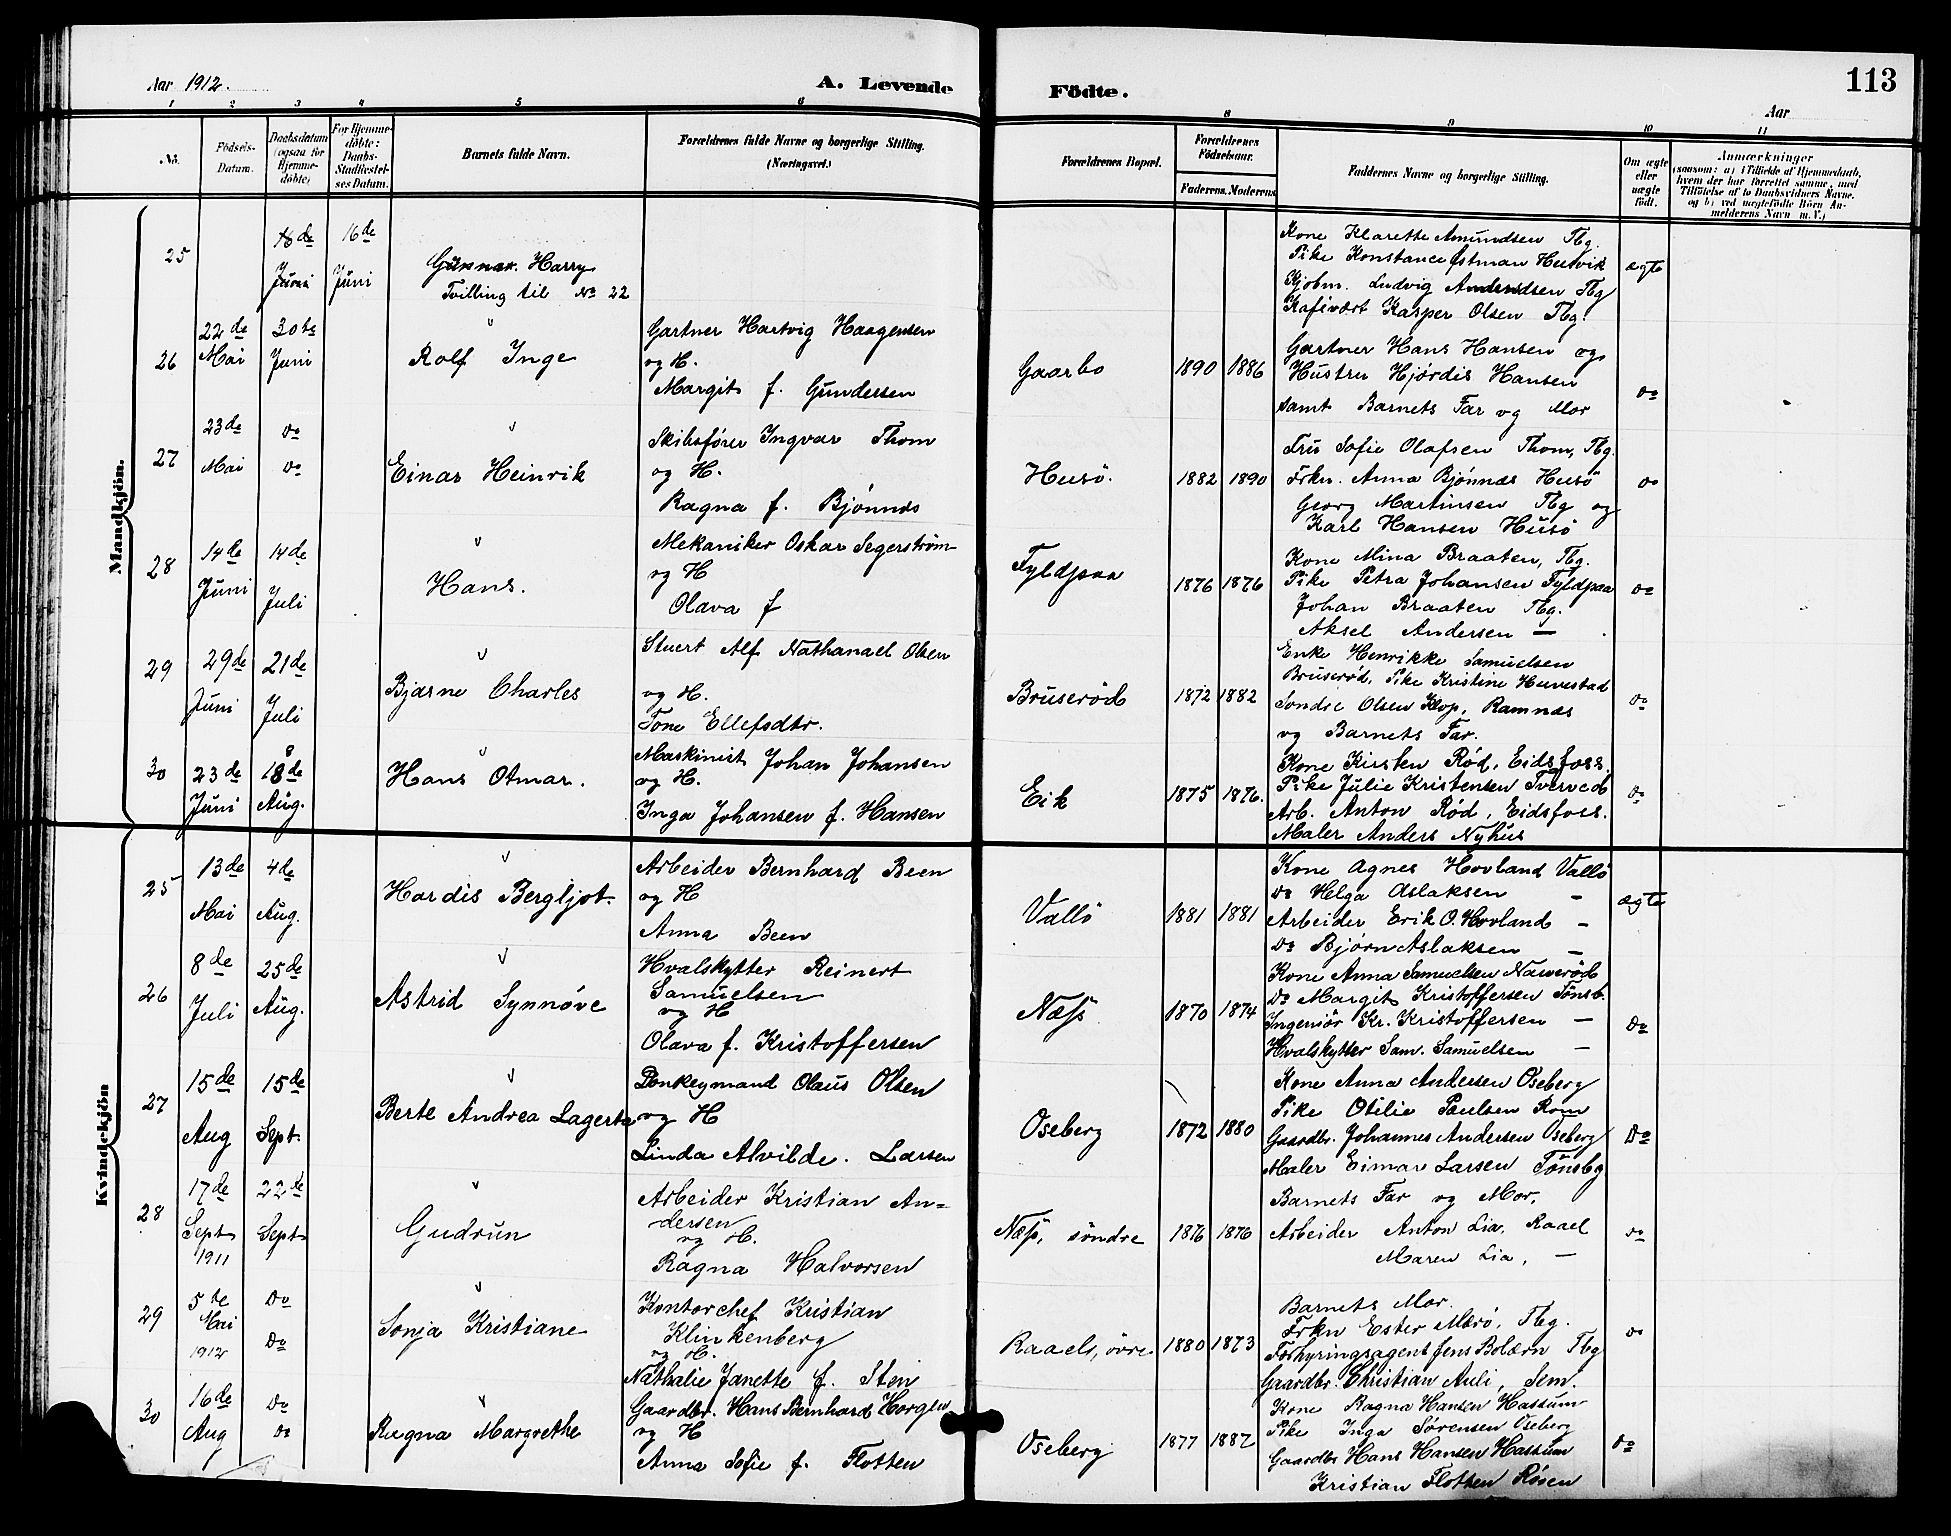 Aar 1912.
A. Levende Födte.
113
Aar
1 2 3 4 5 6 8 9 10 11
No.
Födsels-Datum.
Daabsdatum (ogsaa for Hjemmedöbte)
For Hjemmedöbte: Daabs-Stadfæstelses Datum.
Barnets fulde Navn.
Forældrenes fulde Navne og borgerlige Stilling. (Næringsvei.)
Forældrenes Bopæl.
Forældrenes Födselsaar.
Faderens. Moderens.
Faddernes Navne og borgerlige Stilling.
Om ægte eller uægte födt.
Anmærkninger
(saasom: a) i Tilfælde af Hjemmedaab, hvem der har forrettet samme, med Tilföielse af to Daabsvidners Navne, og b) ved uægtefödte Börn Anmelderens Navn m. V.)
Mandkjön.
25
16de Juni
16de Juni
Gunnar Harry
Tvilling til No 22
Kone Klarette Amundsen Tbg.
Pike Konstance Østman Husvik
Kjøbm. Ludvig Amundsen Tbg
Kafévært Kasper Olsen Tbg.
ægte
26
22de Mai
30te Juni
Rolf Inge
Gartner Hartvig Haagensen
og H.
Margit f. Gundersen
Gaarbo
1890 1886
Gartner Hans Hansen og
Hustru Hjørdis Hansen
samt Barnets Far og Mor
do
27
23de Mai
do do
Einar Heinrik
Skibsfører Ingvar Thom
og H.
Ragna f. Bjønnes
Husö.
1882 1890
Fru Sofie Olafsen Thom, Tbg.
Frkn. Anna Bjønnes Husö
Georg Martinsen Tbg og
Karl Hansen Husö
do
28
14de Juni
14de Juli
Hans.
Mekaniker Oskar Segerström
og H
Olava f
Fyldpaa
1876 1876
Kone Mina Braaten, Tbg.
Pike Petra Johansen Fyldpaa
Johan Braaten Tbg.
Aksel Andersen —
do
29
29de Juni
21de Juli
Bjarne Charles
Stuert Alf Nathanael Olsen
og H.
Tone Ellefsdtr.
Bruserød
1872 1882
Enke Henrikke Samuelsen
Bruserød, Pike Kristine Huvestad
Sondre Olsen Klop, Ramnæs
og Barnets Far.
do
30
23de Juni
18de Aug.
Hans Otmar.
Maskinist Johan Johansen
og H.
Inga Johansen f. Hansen
Eik
1875 1876.
Kone Kirsten Rød, Eidsfoss.
Pike Julie Kristensen Tverved
Arb. Anton Rød, Eidsfoss.
Maler Anders Nyhus
do
Kvindekjön
25
13de Mai
4de Aug.
Hardis Bergljot.
Arbeider Bernhard Been
og H
Anna Been
Vallö
1881 1881
Kone Agnes Hovland Vallö
do Helga Aslaksen —
Arbeider Erik O. Hovland —
do Bjørn Aslaksen —
ægte
26
8de Juli
25de Aug.
Astrid Synnöve
Hvalskytter Reinert
Samuelsen
og H
Olava f. Kristoffersen
Næss
1870 1874
Kone Anna Samuelsen Naverød
do Margit Kristoffersen Tönsb.
Ingeniör Kr. Kristoffersen —
Hvalskytter Sam. Samuelsen —
do
27
15de Aug
15de Sept.
Berte Andrea Lagerta
Donkeymand Olaus Olsen
og H
Linda Alvilde. Larsen
Oseberg
1872 1880
Kone Anna Andersen Oseberg
Pike Otilie Paulsen Rom
Gaardbr. Johannes Andersen Oseberg
Maler Eimar Larsen Tönsbg
do
28
17de Sept 1911
22de Sept
Gudrun
Arbeider Kristian An-
dersen
og H.
Ragna Halvorsen
Næss, söndre
1876 1876
Barnets Far og Mor,
Arbeider Anton Lia, Raael
Maren Lia, —
do
29
5te Mai 1912
do do
Sonja Kristiane
Kontorchef Kristian
Klinkenberg
og H.
Nathalie Janette f. Sten
Raael, övre
1880 1873
Barnets Mor.
Frkn Ester Mærö, Tbg.
Forhyringsagent Jens Bolærn Tbg
Gaardbr. Christian Auli, Sem.
do
30
16de Aug
do do
Ragna Margrethe
Gaardbr. Hans Bernhard Horgen
og H
Anna Sofie f. Flotten
Oseberg
1877 1887
Kone Ragna Hansen Hassum
Pike Inga Sörensen Oseberg
Gaardbr Hans Hansen Hassum
Kristian Flotten Røsen
do